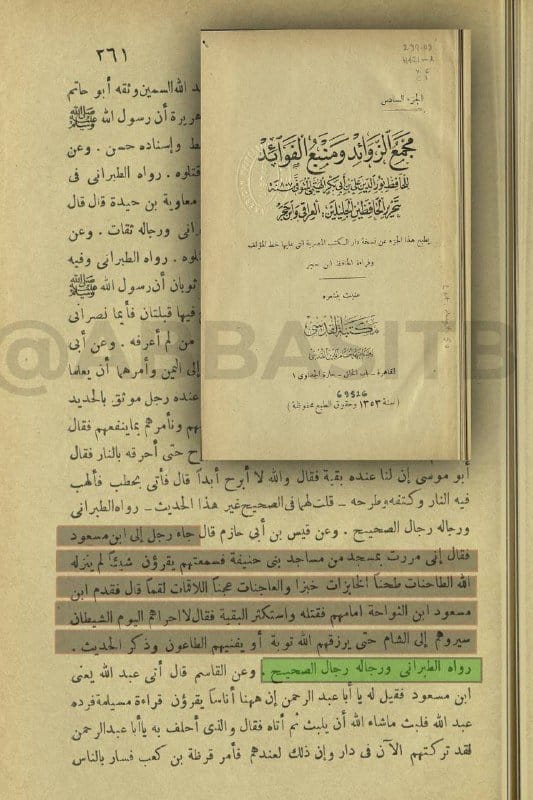 ٢٦١
د الله السمين وثقه أبو حاتم
هريرة أن رسول الله ﷺ
ط وإسناده حسن . وعن
قتلوه . رواه الطبرانى فى
معاوية بن حيدة قال قال
رانى ورجاله ثقات . وعن
لوه . رواه الطبرانى وفيه
ثوبان أن رسول الله ﷺ
فيها قبلتان فأيما نصرانى
من لم أعرفه . وعن أبى
إلى اليمن وأمرهم أن يعلما
عنده رجل موثق بالحديد
هم ونأمرهم بما ينفعهم فقال
رح حتى أحرقه بالنار فقال
أبو موسى إن لنا عنده بقية فقال والله لا أبرح أبداً قال فأتى بحطب فألهب
فيه النار وكتفه وطرحه ـ قلت لهما فى الصحيح غير هذا الحديث ـ رواه الطبرانى
ورجاله رجال الصحيح . وعن قيس بن أبى حازم قال جاء رجل إلى ابن مسعود
فقال إنى مررت بمسجد من مساجد بنى حنيفة فسمعتهم يقرؤن شيئاً لم ينزله
الله الطاحنات طحناً الخابزات خبزا والعاجنات عجناً اللاقمات لقماً قال فقدم ابن
مسعود ابن النواحة امامهم فقتله واستكثر البقية فقال لا اجراهم اليوم الشيطان
سيروهم إلى الشام حتى يرزقهم الله توبة أو يفنيهم الطاعون وذكر الحديث .
رواه الطبرانى ورجاله رجال الصحيح . وعن القاسم قال أتى عبد الله يعنى
ابن مسعود فقيل له يا أبا عبد الرحمن إن ههنا أناساً يقرؤن قراءة مسيلمة فرده
عبد الله فلبث ماشاء الله أن يلبث ثم أتاه فقال والذى أحلف به ياأبا عبد الرحمن
لقد تركتهم الآن فى دار وإن ذلك لعندهم فأمر قرظة بن كعب فسار بالناس
الجزء السادس
مجمع الزوائد ومنبع الفوائد
للحافظ نور الدين على بن أبى بكر الهيثمى المتوفى سنة
بتحرير الحافظين الجليلين: العراقى وابن حجر
يطبع هذا الجزء عن نسخة دار الكتب المصرية التى عليها خط المؤلف
وقراءة الحافظ ابن حجر
عنيت بنشره
مكتبة القدسى
القاهرة ـ باب الخلق ـ حارة الجداوى ١
69526
( سنة ١٣٥٣ وحقوق الطبع محفوظة )